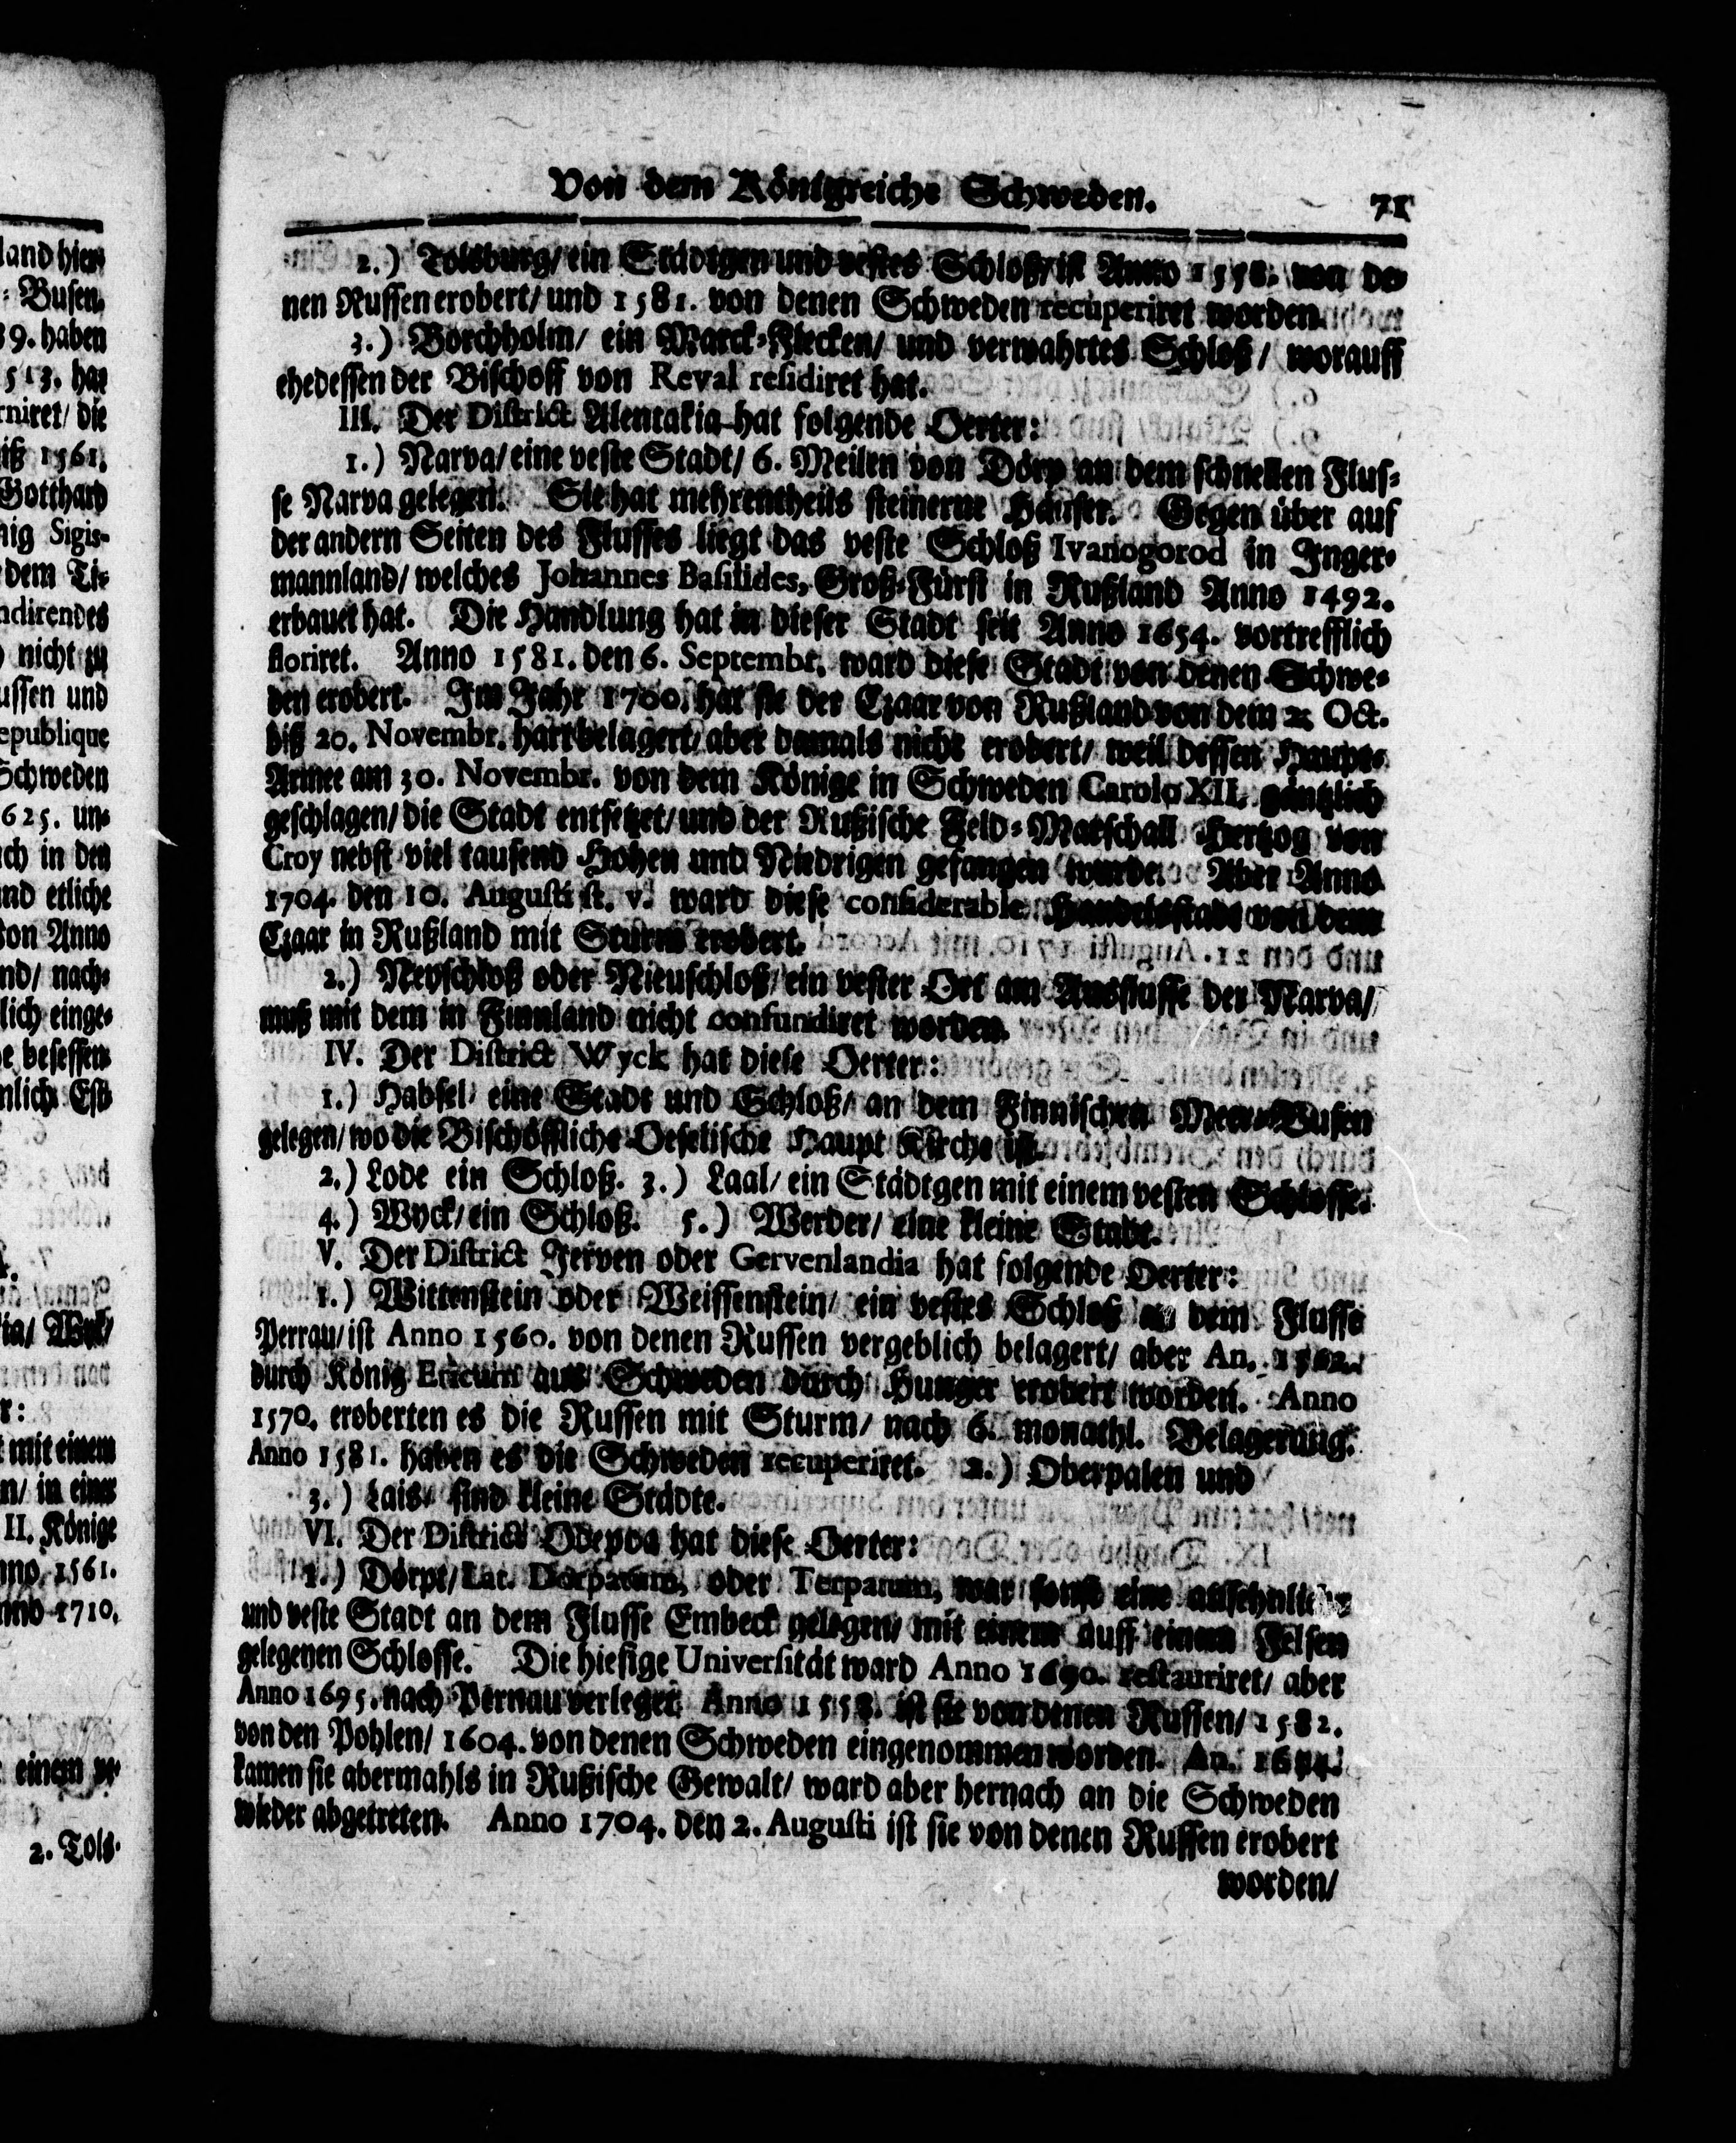 Von dem Königreiche Schweden. 71
2.) Tolsburg/ ein Städtgen und vestes Schloß/ ist Anno 1558. von de-
nen Russen erobert/ und 1581. von denen Schweden recuperiret worden.
3.) Borchholm/ ein Marck-Flecken/ und verwahrtes Schloß/ worauff
ehedessen der Bischoff von Reval residiret hat.
III. Der District Alentakia hat folgende Oerter:
1.) Narva/ eine veste Stadt/ 6. Meilen von Dörp an dem schnellen Flus-
se Narva gelegen. Sie hat mehrentheils steinerne Häuser. Gegen über auf
der andern Seiten des Flusses liegt das veste Schloß Ivanogorod in Inger-
mannland/ welches Johannes Basilides, Groß-Fürst in Rußland Anno 1492.
erbauet hat. Die Handlung hat in dieser Stadt seit Anno 1654. vortrefflich
floriret. Anno 1581. den 6. Septembr. ward diese Stadt von denen Schwe-
den erobert. Im Jahr 1700. hat sie der Czaar von Rußland von dem Oct.
biß 20. Novembr. hart belagert/ aber damals nicht erobert/ weil dessen Haupt-
Armee am 30. Novembr. von dem Könige in Schweden Carolo XII. gäntzlich
geschlagen/ die Stadt entsetzet/ und der Rußische Feld-Marschall Hertzog von
Croy nebst viel tausend Hohen und Niedrigen gefangen wurde. Aber Anno
1704. den 10. Augusti st. v. ward diese considerable Handelsstadt von dem
Czaar in Rußland mit Sturm erobert.
2.) Neyschloß oder Nieuschloß/ ein vester Ort am Ausflusse der Narva/
muß mit dem in Finnland nicht confundiret worden.
IV. Der District Wyck hat diese Oerter:
1.) Habsel/ eine Stadt und Schloß/ an dem Finnischen Meer-Busen
gelegen/ wo die Bischöffliche Oeselische Haupt Kirche ist.
2.) Lode ein Schloß. 3.) Laal/ ein Städtgen mit einem vesten Schlosse.
4.) Wyck/ ein Schloß. 5.) Werder/ eine kleine Stadt.
V. Der District Jerven oder Gervenlandia hat folgende Oerter:
1.) Wittenstein oder Weissenstein/ ein vestes Schloß an dem Flusse
Perrau/ ist Anno 1560. von denen Russen vergeblich belagert/ aber An. 1562.
durch König Ericum aus Schweden durch Hunger erobert worden. Anno
1570. eroberten es die Russen mit Sturm/ nach 6. monathl. Belagerung.
Anno 1581. haben es die Schweden recuperiret. 2.) Oberpalen und
3.) Lais/ sind kleine Städte.
VI. Der District Odepoa hat diese Oerter:
1.) Dörpt/ Lat. Dorpatum, oder Terpatum, war sonst eine ansehnliche
und veste Stadt an dem Flusse Embeck gelegen/ mit einem auff einem Felsen
gelegenen Schlosse. Die hiesige Universität ward Anno 1690. restauriret/ aber
Anno 1695. nach Pernau verleget. Anno 1558. ist sie von denen Russen/ 1582.
von den Pohlen/ 1604. von denen Schweden eingenommen worden. An.
kamen sie abermahls in Rußische Gewalt/ ward aber hernach an die Schweden
wieder abgetreten. Anno 1704. den 2. Augusti ist sie von denen Russen erobert
worden/
land hier-
Busen,
9. haben
513. hat
rniret/ die
iß 1561.
Gotthard
nig Sigis-
dem Ti-
ndirendes
nicht zu
ussen und
epublique
Schweden
625. un-
ch in den
nd etliche
on Anno
nd/ nach-
lich einge-
e besessen
nlich Est-
ia/ Wyk/
r:
mit einem
n/ in einer
II. Könige
nno. 1561.
nno 1710.
einem ve-
2. Tols-